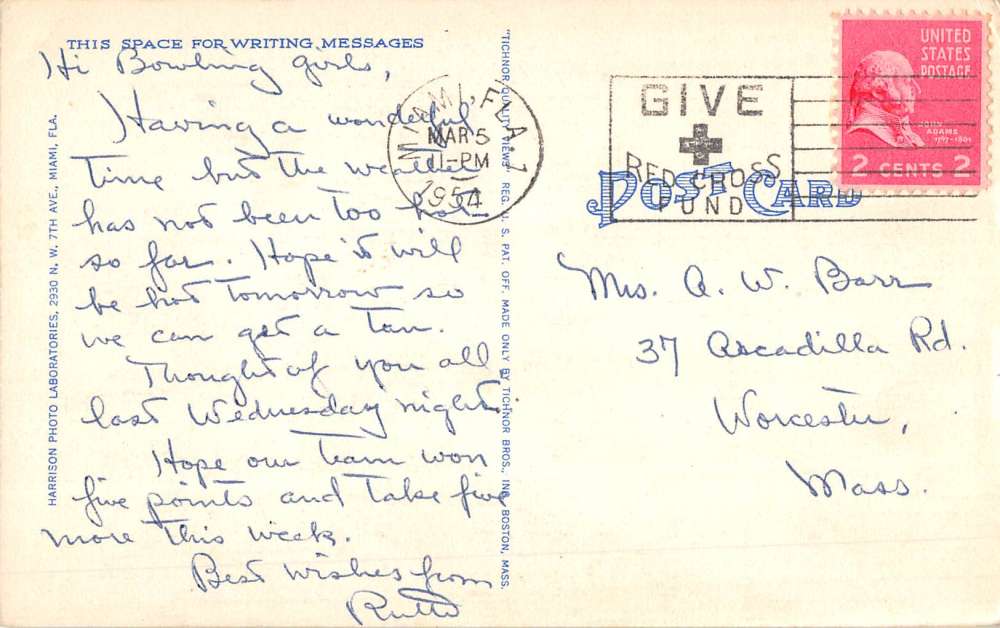 THIS SPACE FOR WRITING MESSAGES
Hi Bowling girls,
Having a wonderful
time but the weather
has not been too hot
so far. Hope it will
be hot tomorrow so
we can get a tan.
Thought of you all
last Wednesday night.
Hope our team won
five points and take five
more this week.
Best wishes from
Ruth
HARRISON PHOTO LABORATORIES, 2930 N. W. 7TH AVE., MIAMI, FLA.
"TICHNOR QUALITY VIEWS" REG. U. S. PAT. OFF. MADE ONLY BY TICHNOR BROS., INC., BOSTON, MASS.
MIAMI, FLA. 7
MAR 5
11-PM
1954
GIVE
RED CROSS
FUND
POST CARD
UNITED
STATES
POSTAGE
JOHN
ADAMS
1797-1801
2 CENTS 2
Mrs. A. W. Barr
37 Ascadilla Rd.
Worcester,
Mass.